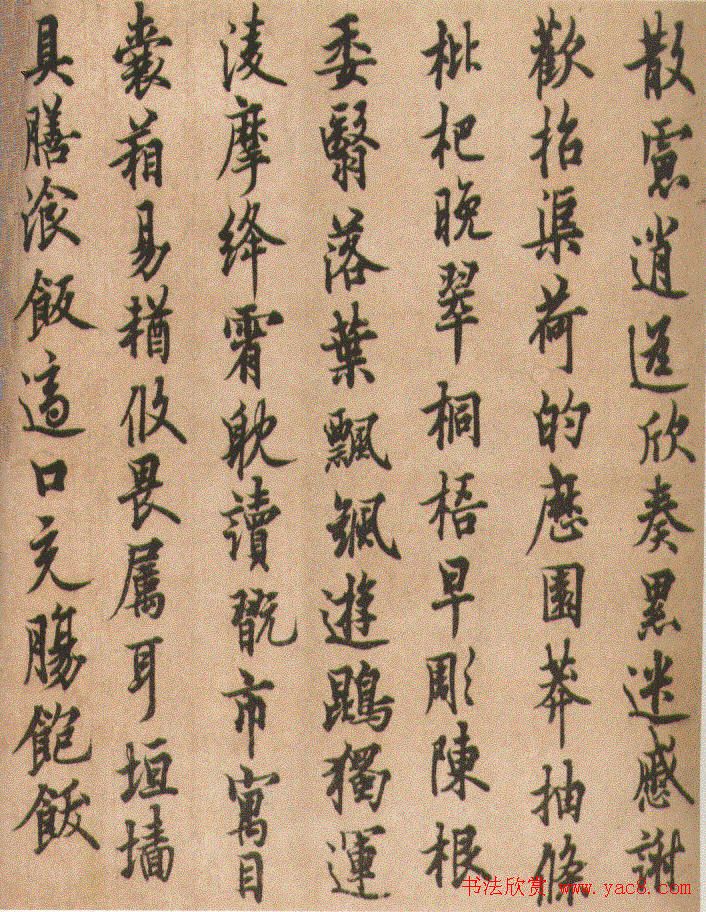 散慮逍遥欣奏累迷慼謝
歡招渠荷的歷園莽抽條
枇杷晚翠桐梧早彫陳根
委翳落葉飄颻遊鵾獨運
淩摩絳霄耽讀翫市寓目
囊箱易輶攸畏属耳垣墙
具膳湌飯適口充腸飽飫
书法欣赏 www.yac8.com